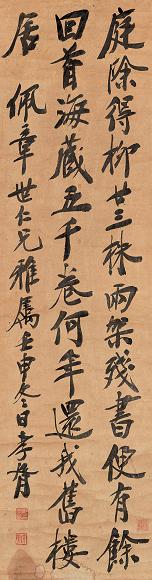 庭除得柳廿三株兩架殘書便有餘
回首海藏五千卷何年還我舊樓
居 佩章世仁兄雅屬壬申冬日孝胥